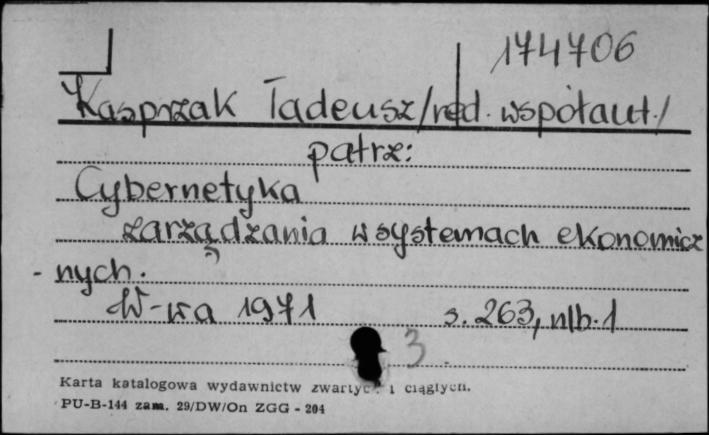 174706
Kasprzak Tadeusz/red. współaut./
patrz:
Cybernetyka
zarządzania w systemach ekonomicz
- nych.
W-wa 1971 s. 263, nlb. 1
3
Karta katalogowa wydawnictw zwartych i ciągłych.
PU-B-144 zam. 29/DW/On ZGG - 204